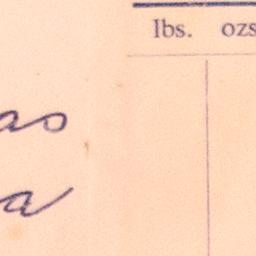 lbs. ozs
as
a